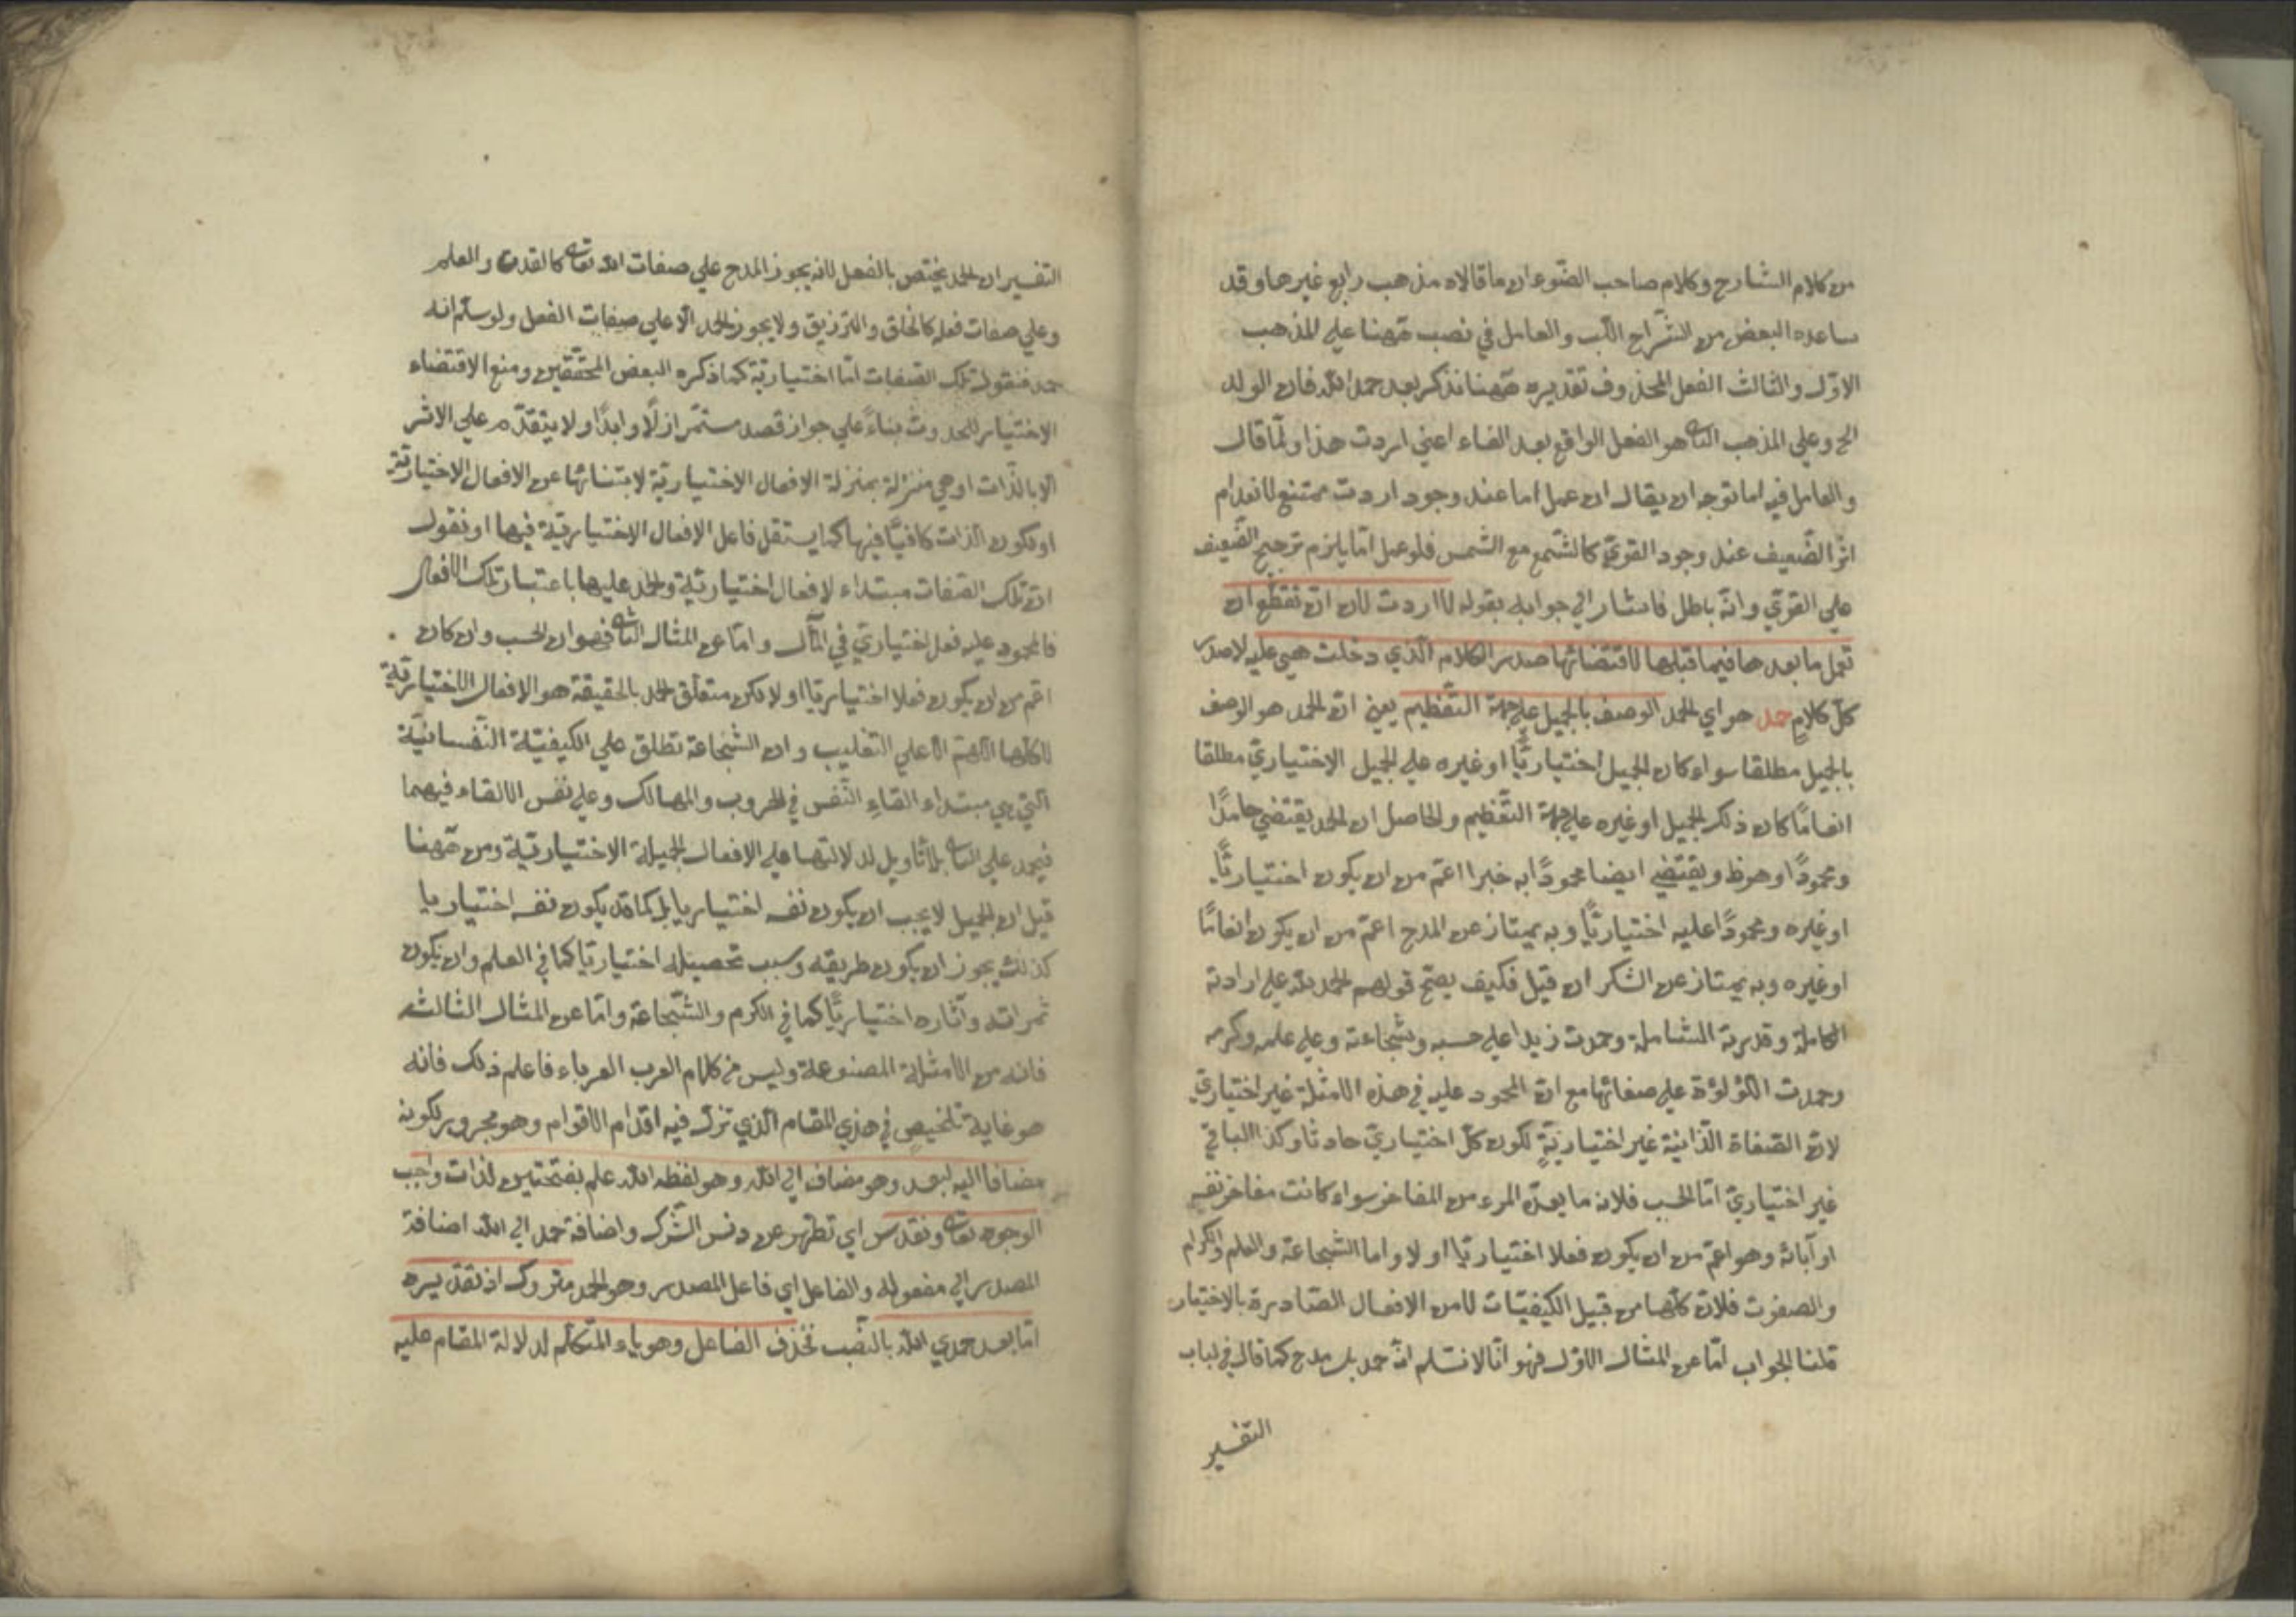 من كلام الشارح وكلام صاحب الضوء ان ما قالاه مذهب رابع غيرها وقد
ساعده البعض من الشراح اللب والعامل في نصب ههنا علي المذهب
الاول والثالث الفعل المحذوف تقديره ههنا نذكر بعد حمد الله فان الولد
الخ وعلي المذهب الثاني هو الفعل الواقع بعد الفاء اعني اردت هذا ولما قال
والعامل فيه اما توجه ان يقال ان عمل اما عند وجود اردت ممتنع لانعدام
اثر الضعيف عند وجود القوي كالشمع مع الشمس فلو عمل اما يلزم ترجيح الضعيف
علي القوي وانه باطل فاشار الي جوابه بقوله لا اردت لان ان تقطع ان
تعمل ما بعدها فيما قبلها لاقتضائها صدر الكلام الذي دخلت هي عليه لا صدر
كل كلام حمد هو اي الحمد الوصف بالجميل علي جهة التعظيم يعني ان الحمد هو الوصف
بالجميل مطلقا سواء كان الجميل اختياريا او غيره علي الجميل الاختياري مطلقا
انعاما كان ذلك الجميل او غيره علي جهة التعظيم والحاصل ان الحمد يقتضي حامدا
ومحمودا وهو ظ ويقتضي ايضا محمودا به خبرا اعم من ان يكون اختياريا
او غيره ومحمودا عليه اختياريا وبه يمتاز عن المدح اعم من ان يكون انعاما
او غيره وبه يمتاز عن الشكر ان قيل فكيف يصح قولهم الحمد لله علي ارادته
الكاملة وقدرته الشاملة وحمدت زيدا علي حسبه وشجاعته وعلي علمه وكرمه
وحمدت اللؤلؤة علي صفائها مع ان المحمود عليه في هذه الامثلة غير اختياري
لان الصفاة الذاتية غير اختيارية لكون كل اختياري حادثا وكذا الباقي
غير اختياري اما الحسب فلانه ما يعده المرء من المفاخر سواء كانت مفاخر نفسه
او آبائه وهو اعم من ان يكون فعلا اختياريا او لا واما الشجاعة والعلم والكرام
والصفوت فلان كلها من قبيل الكيفيات لا من الافعال الصادرة بالاختيار
قلنا الجواب اما عن المثال الاول فهو انا لا نسلم انه حمد بل مدح كما قال في لباب
التفسير
التفسير ان الحمد يختص بالفعل لانه يجوز المدح علي صفات الله تعالى كالقدرة والعلم
وعلي صفات فعله كالخلق والترزيق ولا يجوز الحمد الا علي صفات الفعل ولو سلم انه
حمد فنقول تلك الصفات اما اختيارية كما ذكره البعض المحققين ومنع الاقتضاء
الاختيار الحدوث بناء علي جواز قصد مستمر ازلا وابدا ولا يتقدم علي الاثر
الا بالذات او هي منزلة بمنزلة الافعال الاختيارية لابتنائها عن الافعال الاختيارية
او بكون الذات كافيا فيها كما يستقل فاعل الافعال الاختيارية فيها او نقول
ان تلك الصفات مبتداء لافعال اختيارية والحمد عليها باعتبار تلك الافعال
فالمحمود عليه فعل اختياري في المآل واما عن المثال الثاني فهو ان الحسب وان كان
اعم من ان يكون فعلا اختياريا او لا لكن متعلق الحمد بالحقيقة هو الافعال الاختيارية
لا كلها اللهم الا علي التغليب وان الشجاعة تطلق علي الكيفية النفسانية
التي هي مبتداء القاء النفس في الحروب والمهالك وعلي نفس الالقاء فيهما
فيحمد علي الثاني بلا تأويل لدلالتها علي الافعال الجميلة الاختيارية ومن ههنا
قيل ان الجميل لا يجب ان يكون نفسه اختياريا بل كما قد يكون نفسه اختياريا
كذلك يجوز ان يكون طريقه وسبب تحصيله اختياريا كما في العلم وان يكون
ثمراته وآثاره اختياريا كما في الكرم والشجاعة واما عن المثال الثالث
فانه من الامثلة المصنوعة وليس من كلام العرب العرباء فاعلم ذلك فانه
هو غاية تلخيص في هذي المقام الذي تزل فيه اقدام الاقوام وهو مجرور لكونه
مضافا اليه لبعد وهو مضاف الي الله وهو لفظه الله علم بفتحتين لذات واجب
الوجود تعالى وتقدس اي تطهر عن دنس الشرك واضافة حمد الي الله اضافة
المصدر الي مفعوله والفاعل اي فاعل المصدر وهو الحمد متروك اذ تقديره
اما بعد حمدي الله بالنصب فحذف الفاعل وهو ياء المتكلم لدلالة المقام عليه